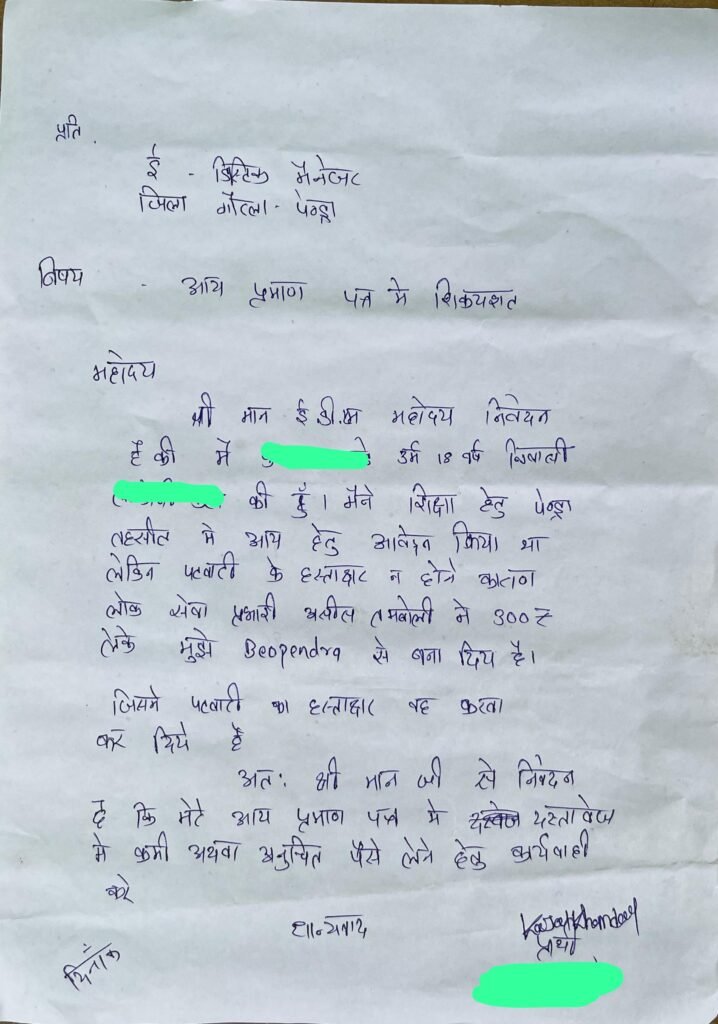 प्रति.
ई - डिस्टिक मैनेजर
जिला गौरेला - पेन्ड्रा
विषय - आय प्रमाण पत्र मे शिकयशत
महोदय
श्री मान ई.डी.एम महोदय निवेदन
है की में उर्म 18 वर्ष निवासी
की हुँ। मैने शिक्षा हेतु पेन्ड्रा
तहसील मे आय हेतु आवेदन किया था
लेकिन पटवारी के हस्ताक्षर न होने कारण
लोक सेवा प्रभारी तमबोली ने 300 ₹
लेके मुझे Beopendra से बना दिय है।
जिसमे पटवारी का हस्ताक्षर वह करवा
कर दिये है
अतः श्री मान जी से निवेदन
है कि मेरे आय प्रमाण पत्र मे दस्तावेज
मे कमी अथवा अनुचित पैसे लेने हेतु कार्यवाही
करे
धान्यवाद
प्रार्थी
दिनाँक